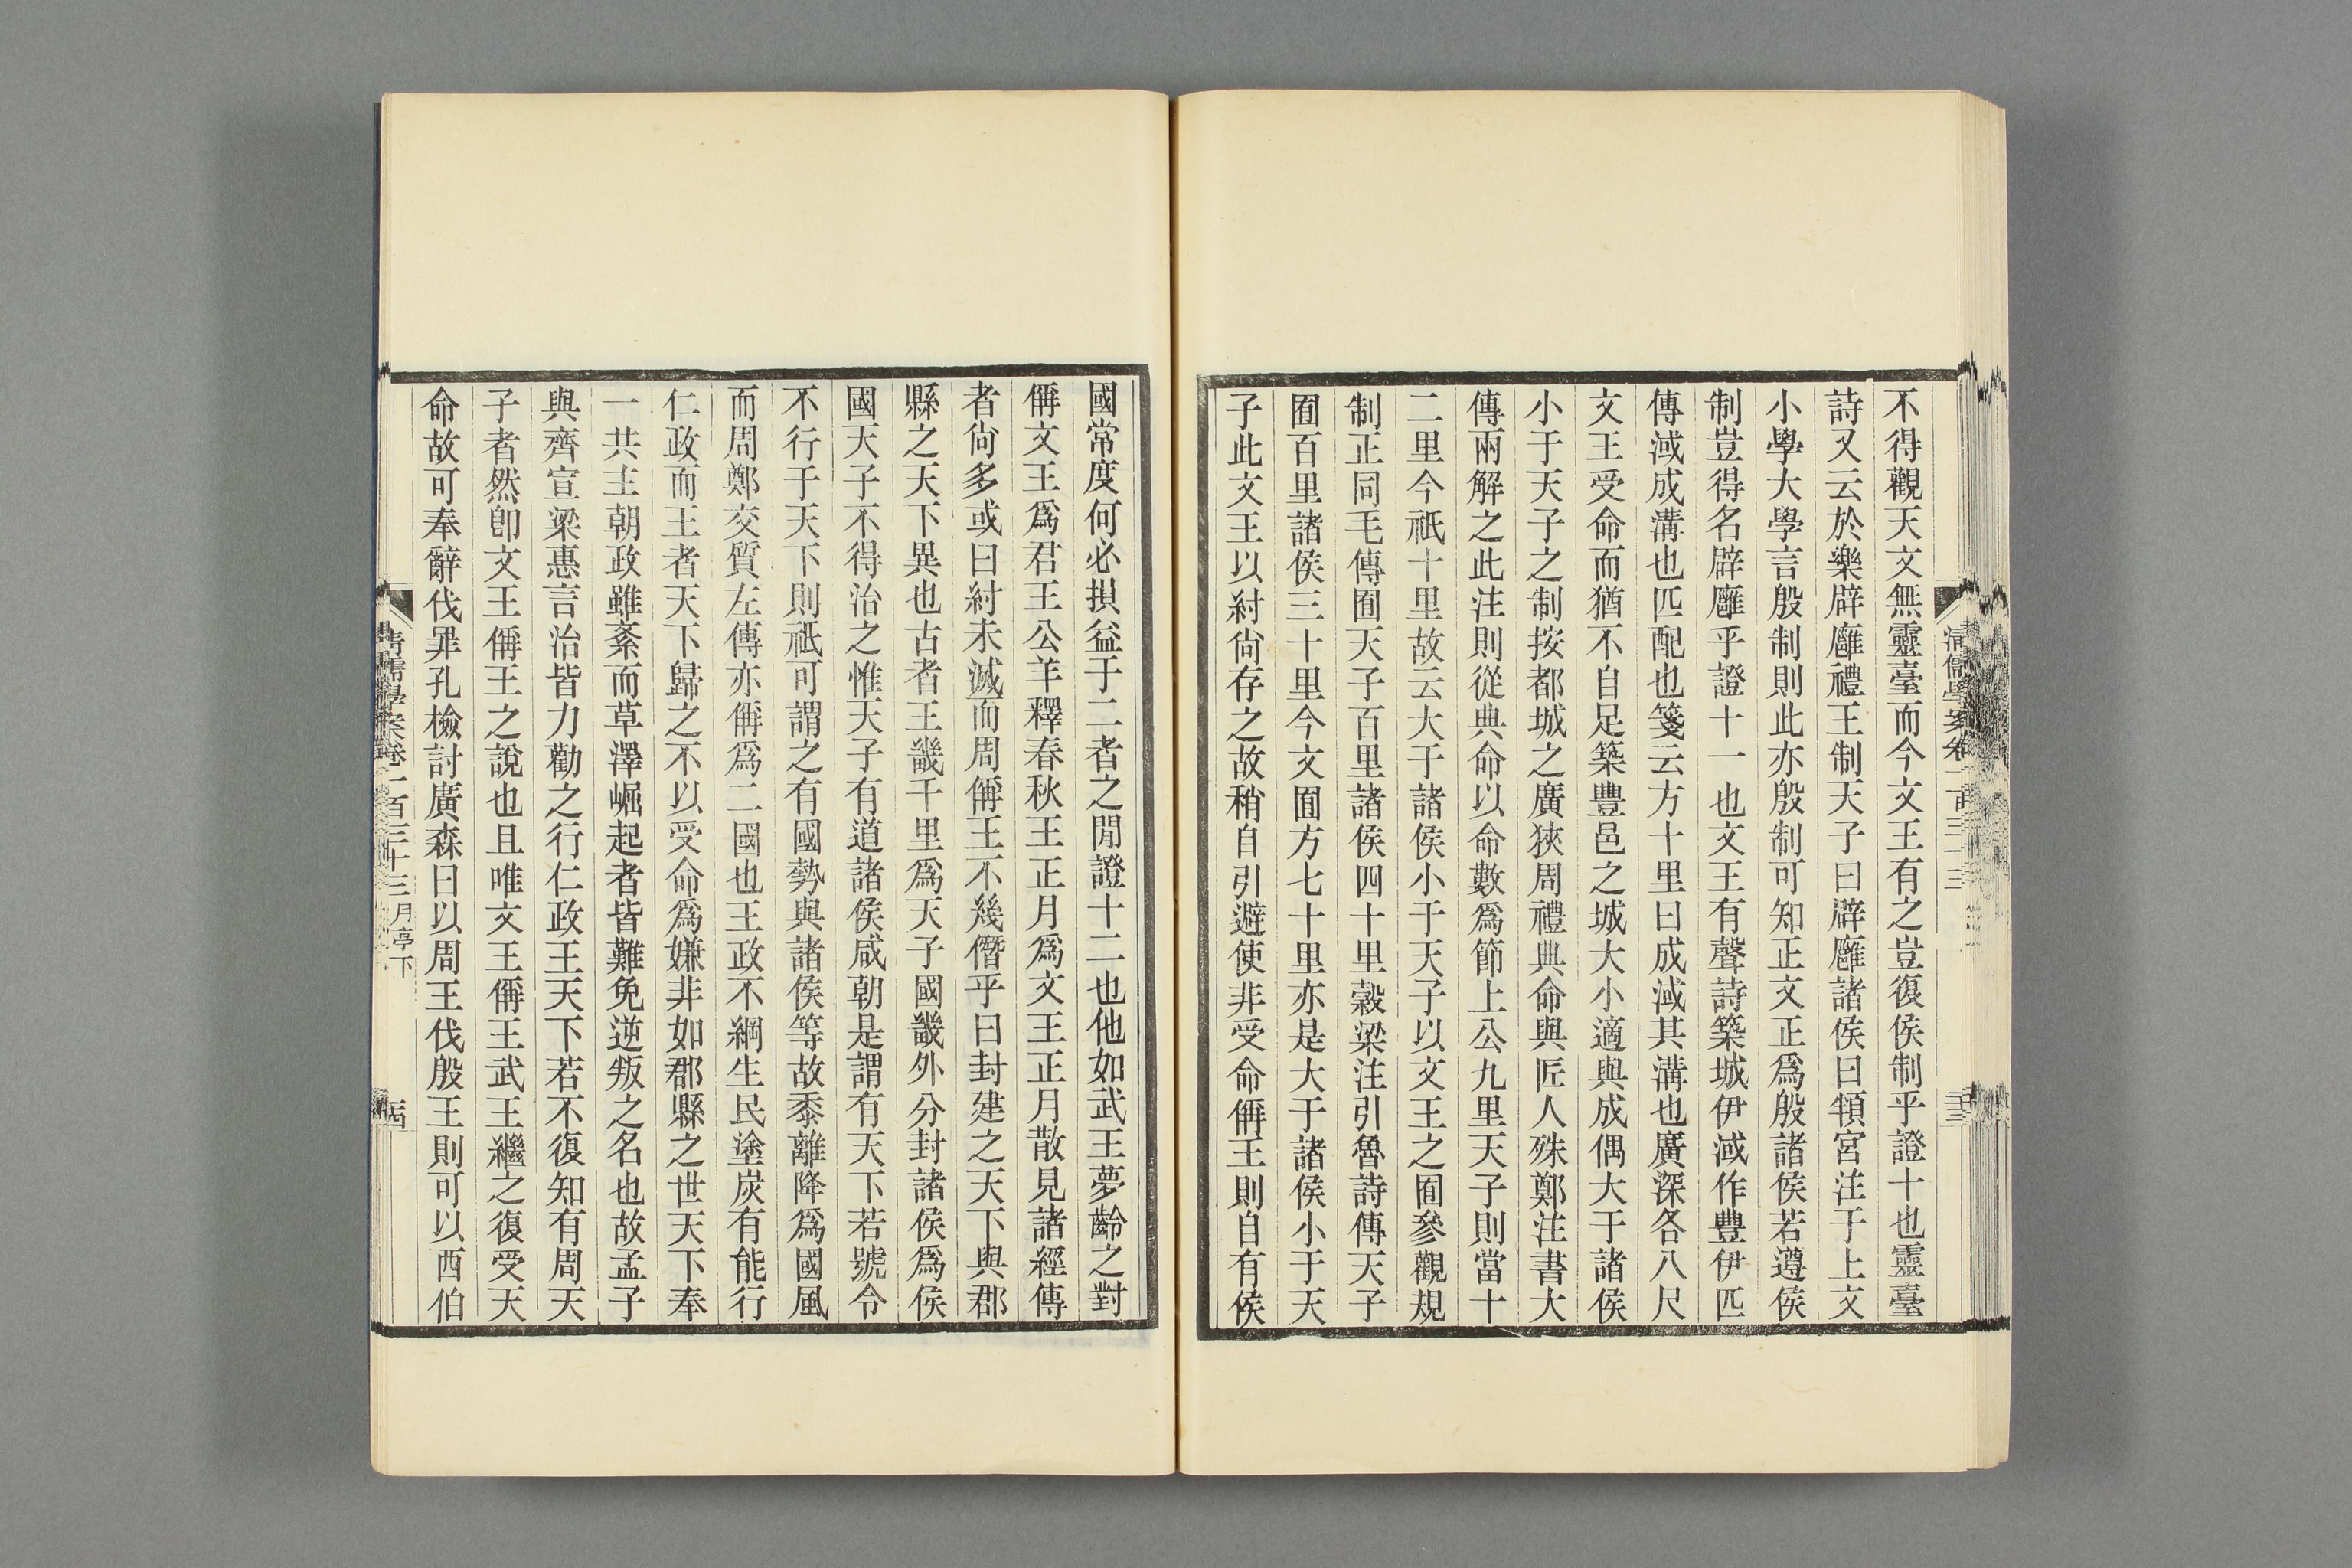 不得觀天文無靈臺而今文王有之豈復侯制乎證十也靈臺
詩又云於樂辟廱禮王制天子曰辟廱諸侯曰頖宮注于上文
小學大學言殷制則此亦殷制可知正文正爲殷諸侯若遵侯
制豈得名辟廱乎證十一也文王有聲詩築城伊淢作豐伊匹
傳淢成溝也匹配也箋云方十里曰成淢其溝也廣深各八尺
文王受命而猶不自足築豐邑之城大小適與成偶大于諸侯
小于天子之制按都城之廣狹周禮典命與匠人殊鄭注書大
傳兩解之此注則從典命以命數爲節上公九里天子則當十
二里今祇十里故云大于諸侯小于天子以文王之囿參觀規
制正同毛傳囿天子百里諸侯四十里穀梁注引魯詩傳天子
囿百里諸侯三十里今文囿方七十里亦是大于諸侯小于天
子此文王以紂尙存之故稍自引避使非受命偁王則自有侯
國常度何必損益于二者之閒證十二也他如武王夢齡之對
偁文王爲君王公羊釋春秋王正月爲文王正月散見諸經傳
者尙多或曰紂未滅而周偁王不幾僭乎曰封建之天下與郡
縣之天下異也古者王畿千里爲天子國畿外分封諸侯爲侯
國天子不得治之惟天子有道諸侯咸朝是謂有天下若號令
不行于天下則祇可謂之有國勢與諸侯等故黍離降爲國風
而周鄭交質左傳亦偁爲二國也王政不綱生民塗炭有能行
仁政而王者天下歸之不以受命爲嫌非如郡縣之世天下奉
一共主朝政雖紊而草澤崛起者皆難免逆叛之名也故孟子
與齊宣梁惠言治皆力勸之行仁政王天下若不復知有周天
子者然卽文王偁王之說也且唯文王偁王武王繼之復受天
命故可奉辭伐罪孔檢討廣森曰以周王伐殷王則可以西伯
清儒學案卷一百三十三 月亭下